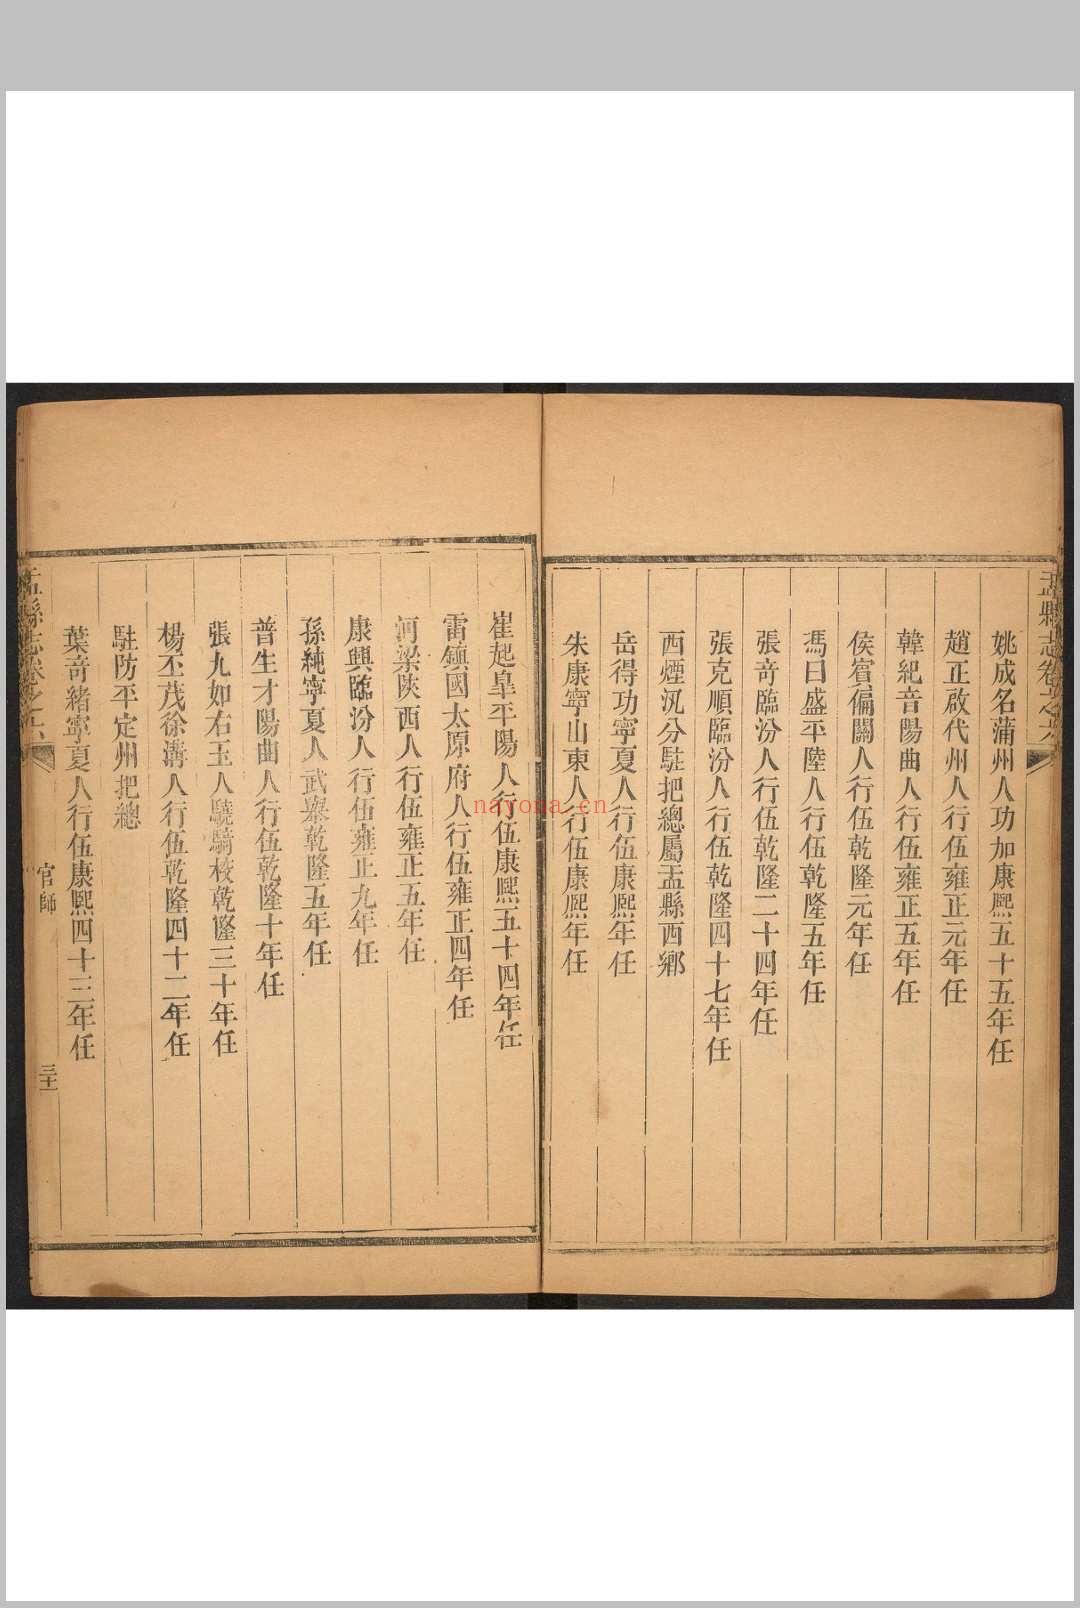 盂縣志卷之六
姚成名蒲州人功加康熙五十五年任
趙正啟代州人行伍雍正元年任
韓紀音陽曲人行伍雍正五年任
侯賔偏關人行伍乾隆元年任
馮曰盛平陸人行伍乾隆五年任
張竒臨汾人行伍乾隆二十四年任
張克順臨汾人行伍乾隆四十七年任
西煙汛分駐把總屬盂縣西鄉
岳得功寧夏人行伍康熙年任
朱康寧山東人行伍康熙年任
崔起臯平陽人行伍康熙五十四年任
雷鎮國太原府人行伍雍正四年任
河梁陜西人行伍雍正五年任
康興臨汾人行伍雍正九年任
孫純寧夏人武舉乾隆五年任
普生才陽曲人行伍乾隆十年任
張九如右玉人驍騎校乾隆三十年任
楊丕茂徐溝人行伍乾隆四十二年任
駐防平定州把總
葉竒緒寧夏人行伍康熙四十三年任
盂縣志卷之六
官師
三十一
nayona.cn